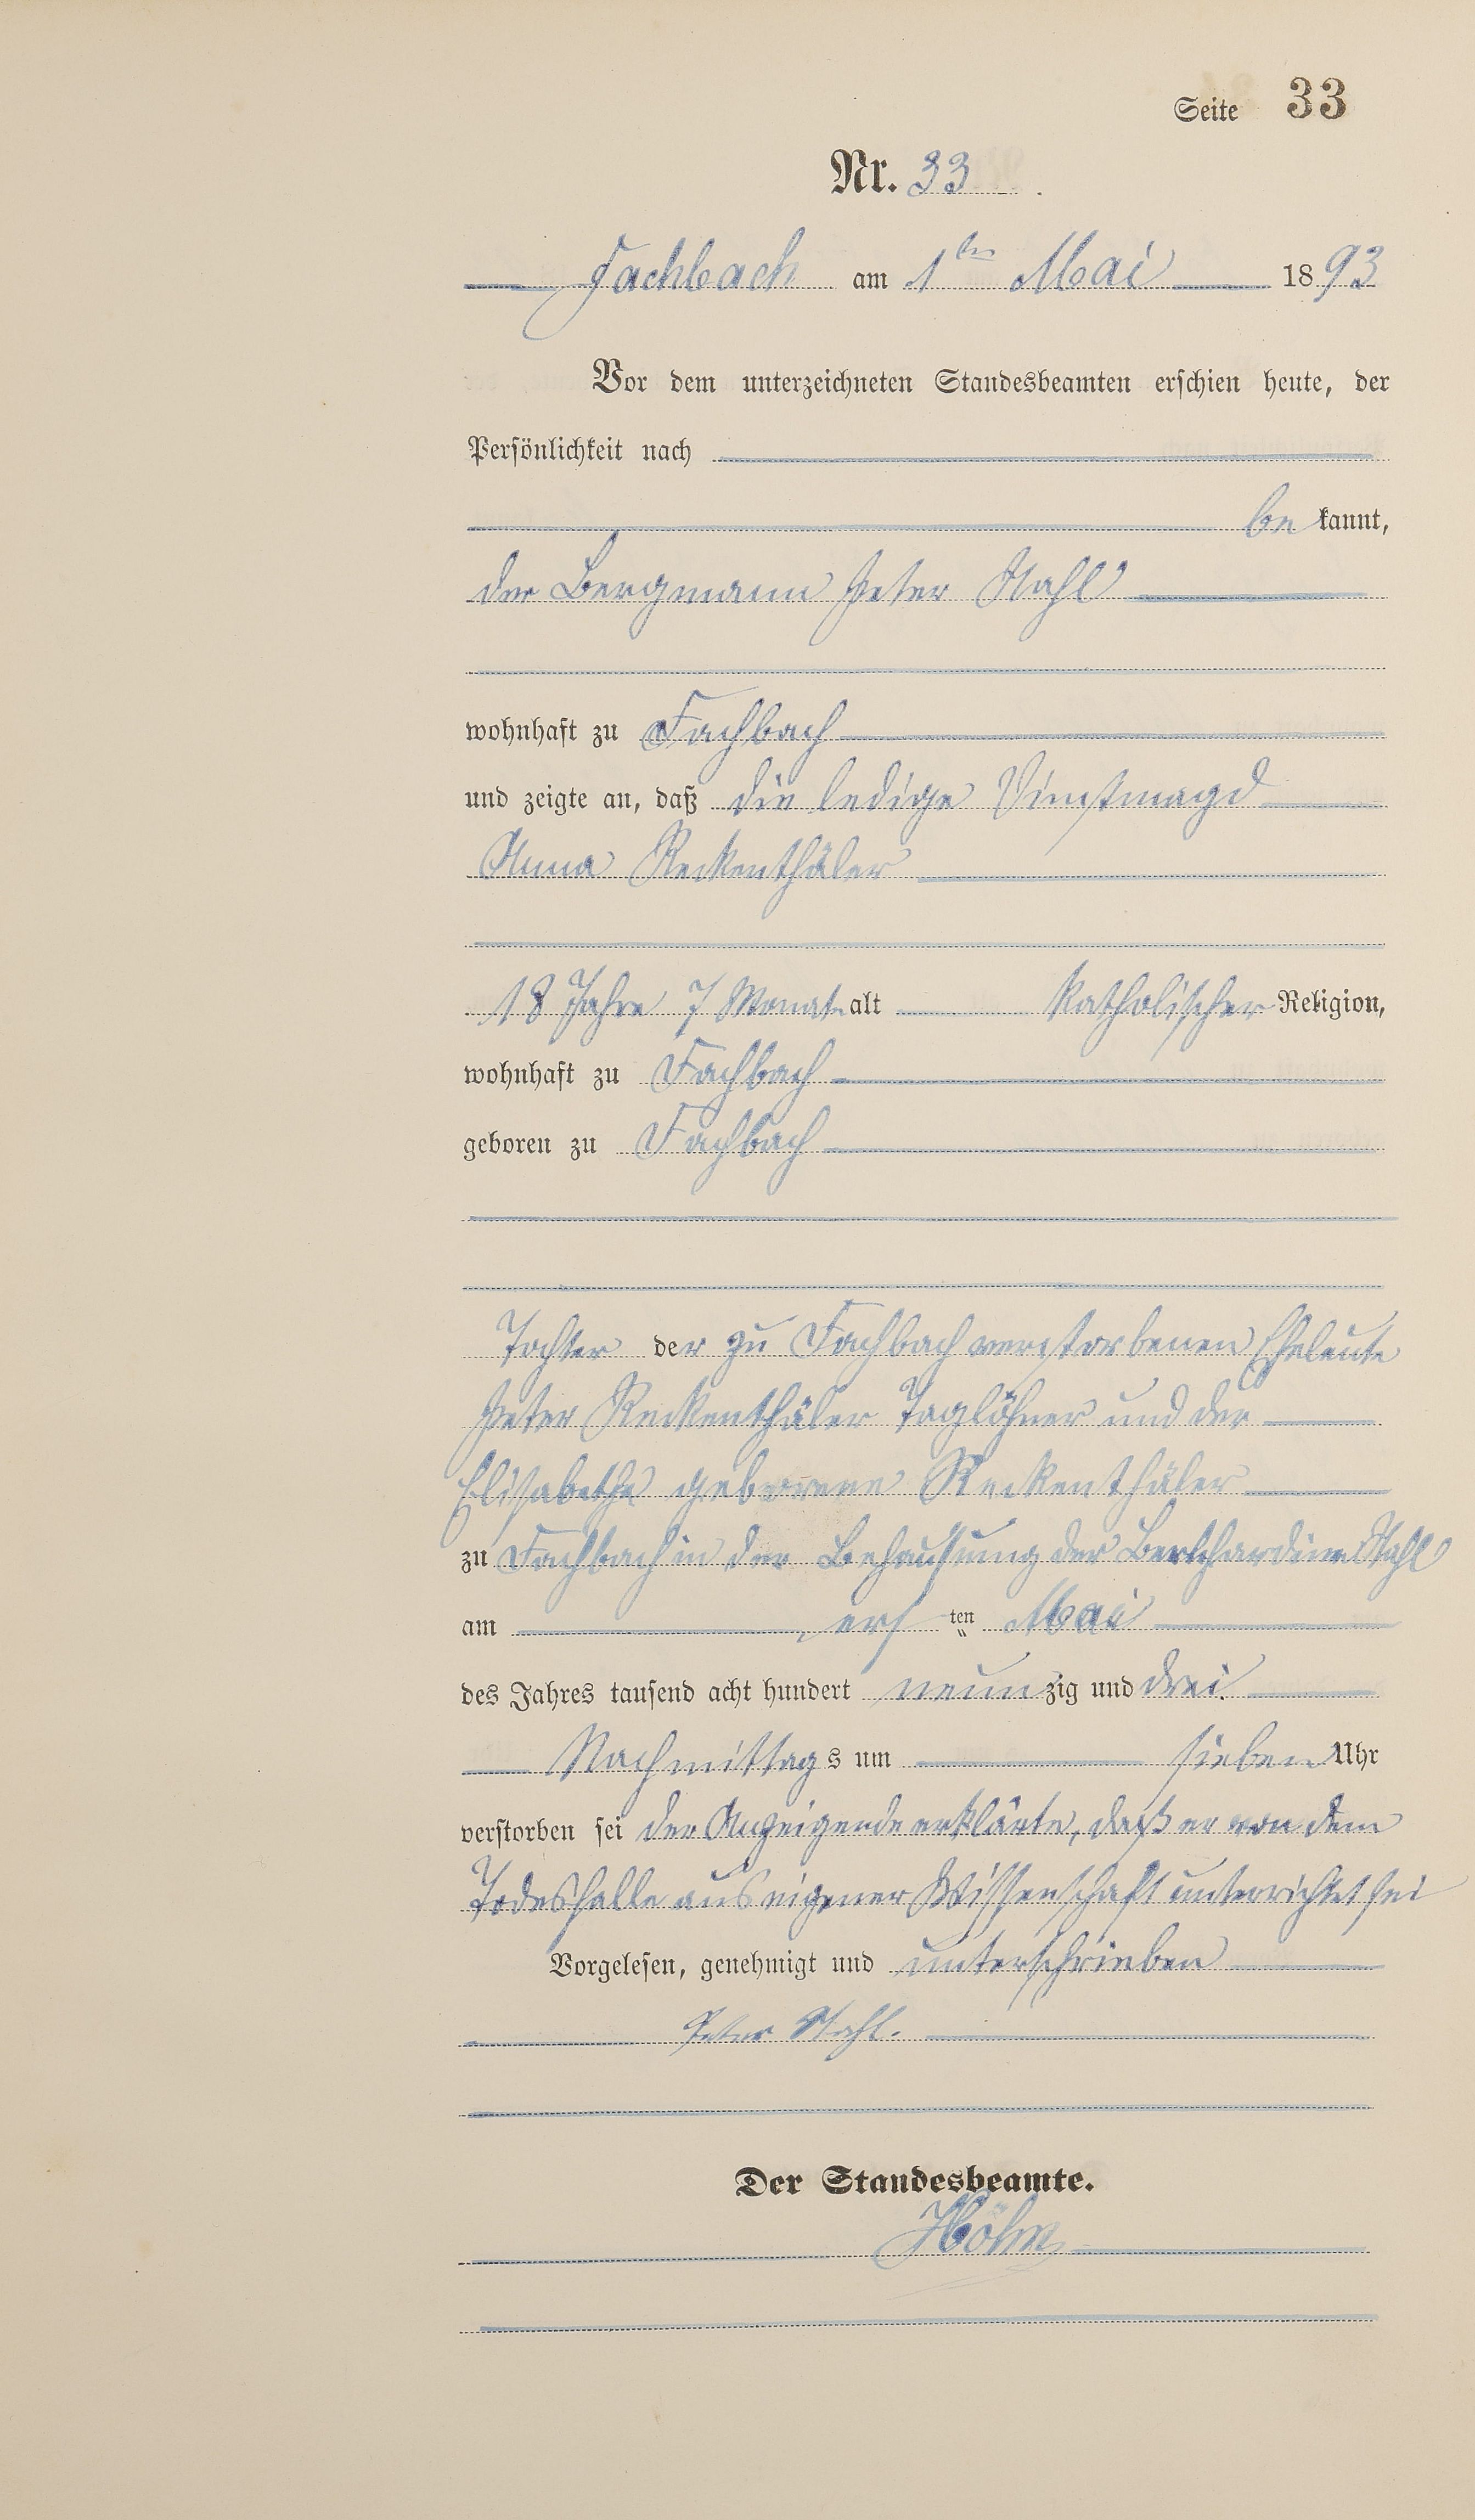 Seite 33
Nr. 33
Fachbach am 1ten Mai 1893
Vor dem unterzeichneten Standesbeamten erschien heute, der
Persönlichkeit nach
be kannt,
der Bergmann Peter Stahl
wohnhaft zu Fachbach
und zeigte an, daß die ledige Dienstmagd
Anna Reckenthäler
18 Jahre 7 Monate alt katholischer Religion,
wohnhaft zu Fachbach
geboren zu Fachbach
Tochter der zu Fachbach verstorbenen Eheleute
Peter Reckenthäler Taglöhner und der
Elisabetha geborene Reckenthäler
zu Fachbach in der Behausung der Stahl
am ers ten Mai
des Jahres tausend acht hundert neun zig und drei
Nachmittag s um sieben Uhr
verstorben sei der Anzeigende erklärte, daß er von dem
Todesfalle aus eigener Wissenschaft unterrichtet sei
Vorgelesen, genehmigt und unterschrieben
Peter Stahl.
Der Standesbeamte.